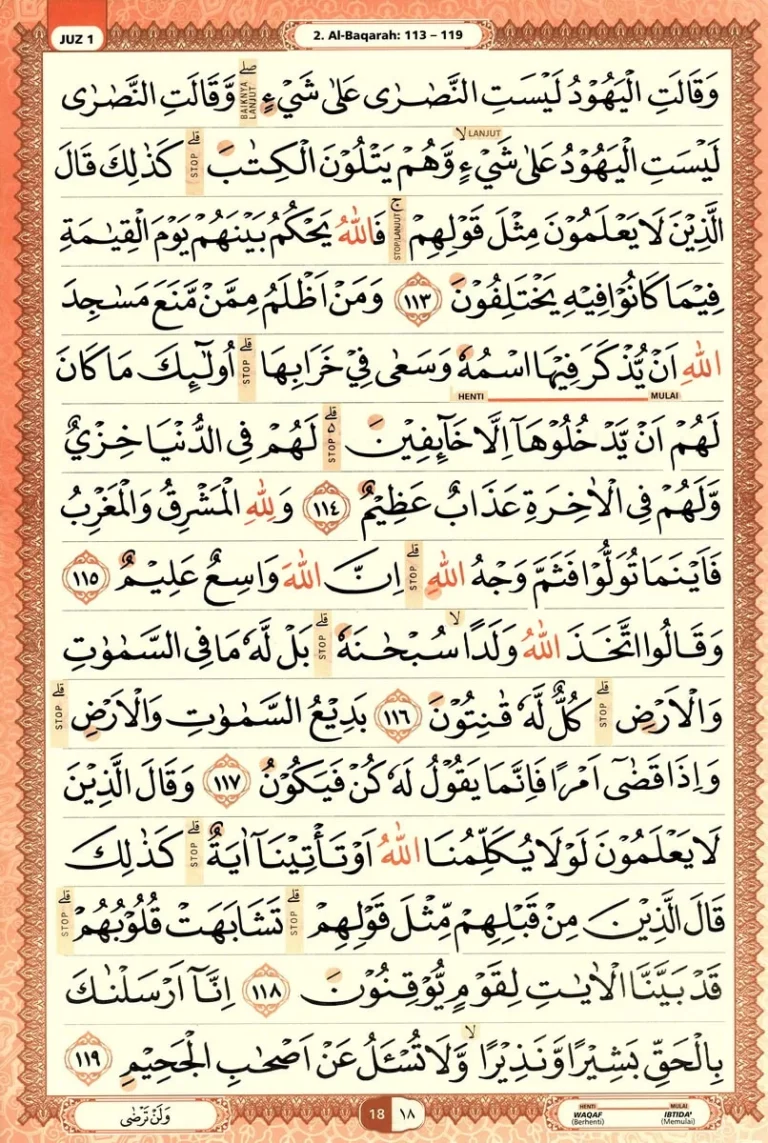 JUZ 1
2. Al-Baqarah: 113 – 119
وَقَالَتِ الْيَهُوْدُ لَيْسَتِ النَّصٰرٰى عَلٰى شَيْءٍ ۖ BAIKNYA LANJUT وَّقَالَتِ النَّصٰرٰى
لَيْسَتِ الْيَهُوْدُ عَلٰى شَيْءٍ ۙ LANJUT وَّهُمْ يَتْلُوْنَ الْكِتٰبَ ۗ STOP كَذٰلِكَ قَالَ
الَّذِيْنَ لَا يَعْلَمُوْنَ مِثْلَ قَوْلِهِمْ ۚ STOP/LANJUT فَاللّٰهُ يَحْكُمُ بَيْنَهُمْ يَوْمَ الْقِيٰمَةِ
فِيْمَا كَانُوْا فِيْهِ يَخْتَلِفُوْنَ ١١٣ وَمَنْ اَظْلَمُ مِمَّنْ مَّنَعَ مَسٰجِدَ
اللّٰهِ اَنْ يُّذْكَرَ فِيْهَا اسْمُهٗ وَسَعٰى فِيْ خَرَابِهَا ۗ STOP اُولٰۤىِٕكَ مَا كَانَ
HENTI MULAI
لَهُمْ اَنْ يَّدْخُلُوْهَآ اِلَّا خَاۤىِٕفِيْنَ ۗ STOP لَهُمْ فِى الدُّنْيَا خِزْيٌ
وَّلَهُمْ فِى الْاٰخِرَةِ عَذَابٌ عَظِيْمٌ ١١٤ وَلِلّٰهِ الْمَشْرِقُ وَالْمَغْرِبُ
فَاَيْنَمَا تُوَلُّوْا فَثَمَّ وَجْهُ اللّٰهِ ۗ STOP اِنَّ اللّٰهَ وَاسِعٌ عَلِيْمٌ ١١٥
وَقَالُوا اتَّخَذَ اللّٰهُ وَلَدًا ۙ سُبْحٰنَهٗ ۗ STOP بَلْ لَّهٗ مَا فِى السَّمٰوٰتِ
وَالْاَرْضِ ۗ STOP كُلٌّ لَّهٗ قٰنِتُوْنَ ١١٦ بَدِيْعُ السَّمٰوٰتِ وَالْاَرْضِ ۗ STOP
وَاِذَا قَضٰٓى اَمْرًا فَاِنَّمَا يَقُوْلُ لَهٗ كُنْ فَيَكُوْنُ ١١٧ وَقَالَ الَّذِيْنَ
لَا يَعْلَمُوْنَ لَوْلَا يُكَلِّمُنَا اللّٰهُ اَوْ تَأْتِيْنَآ اٰيَةٌ ۗ STOP كَذٰلِكَ
قَالَ الَّذِيْنَ مِنْ قَبْلِهِمْ مِّثْلَ قَوْلِهِمْ ۗ STOP تَشَابَهَتْ قُلُوْبُهُمْ ۗ STOP
قَدْ بَيَّنَّا الْاٰيٰتِ لِقَوْمٍ يُّوْقِنُوْنَ ١١٨ اِنَّآ اَرْسَلْنٰكَ
بِالْحَقِّ بَشِيْرًا وَّنَذِيْرًا ۙ وَّلَا تُسْـَٔلُ عَنْ اَصْحٰبِ الْجَحِيْمِ ١١٩
وَلَنْ تَرْضٰى
18 ١٨
HENTI MULAI
WAQAF IBTIDA'
(Berhenti) (Memulai)